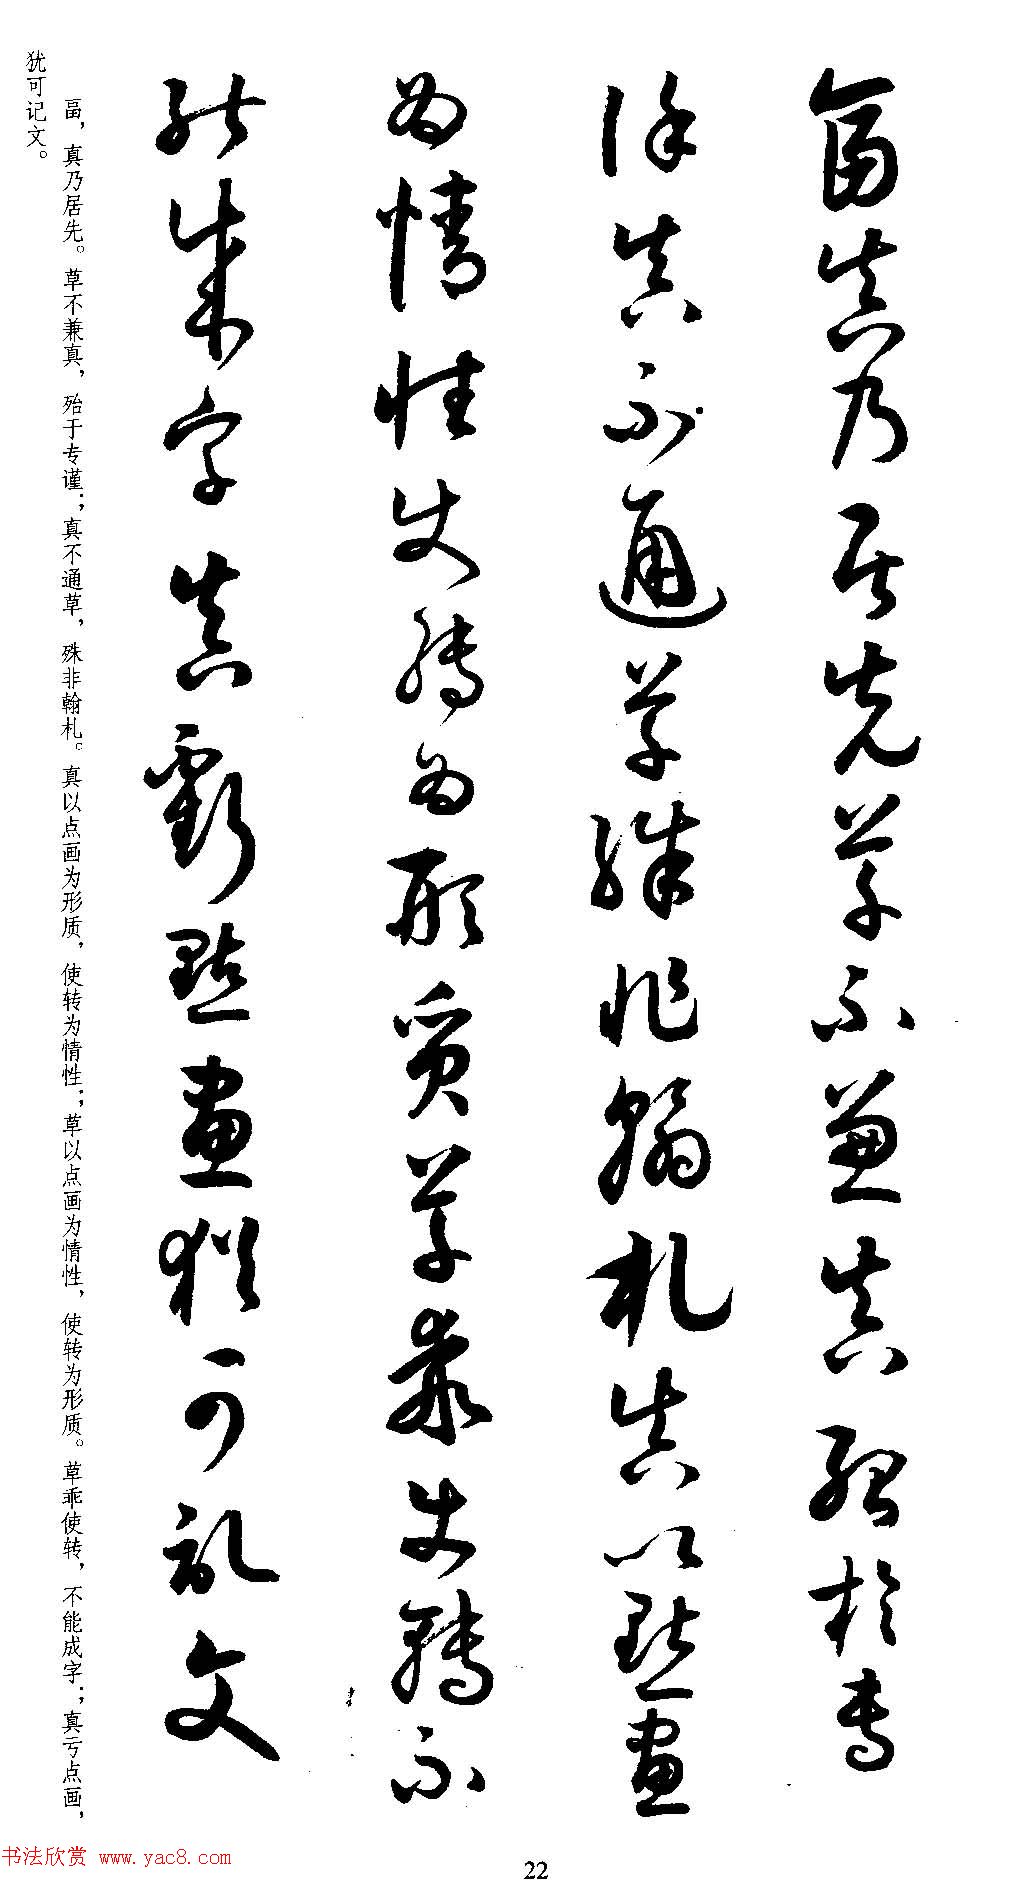 畐真乃居先草不兼真殆於專
謹真不通草殊非翰札真以點畫
為情性使轉為形質草乖使轉不
能成字真虧點畫猶可記文
畐，真乃居先。草不兼真，殆于专谨；真不通草，殊非翰札。真以点画为形质，使转为情性；草以点画为情性，使转为形质。草乖使转，不能成字；真亏点画，
犹可记文。
书法欣赏 www.yac8.com
22